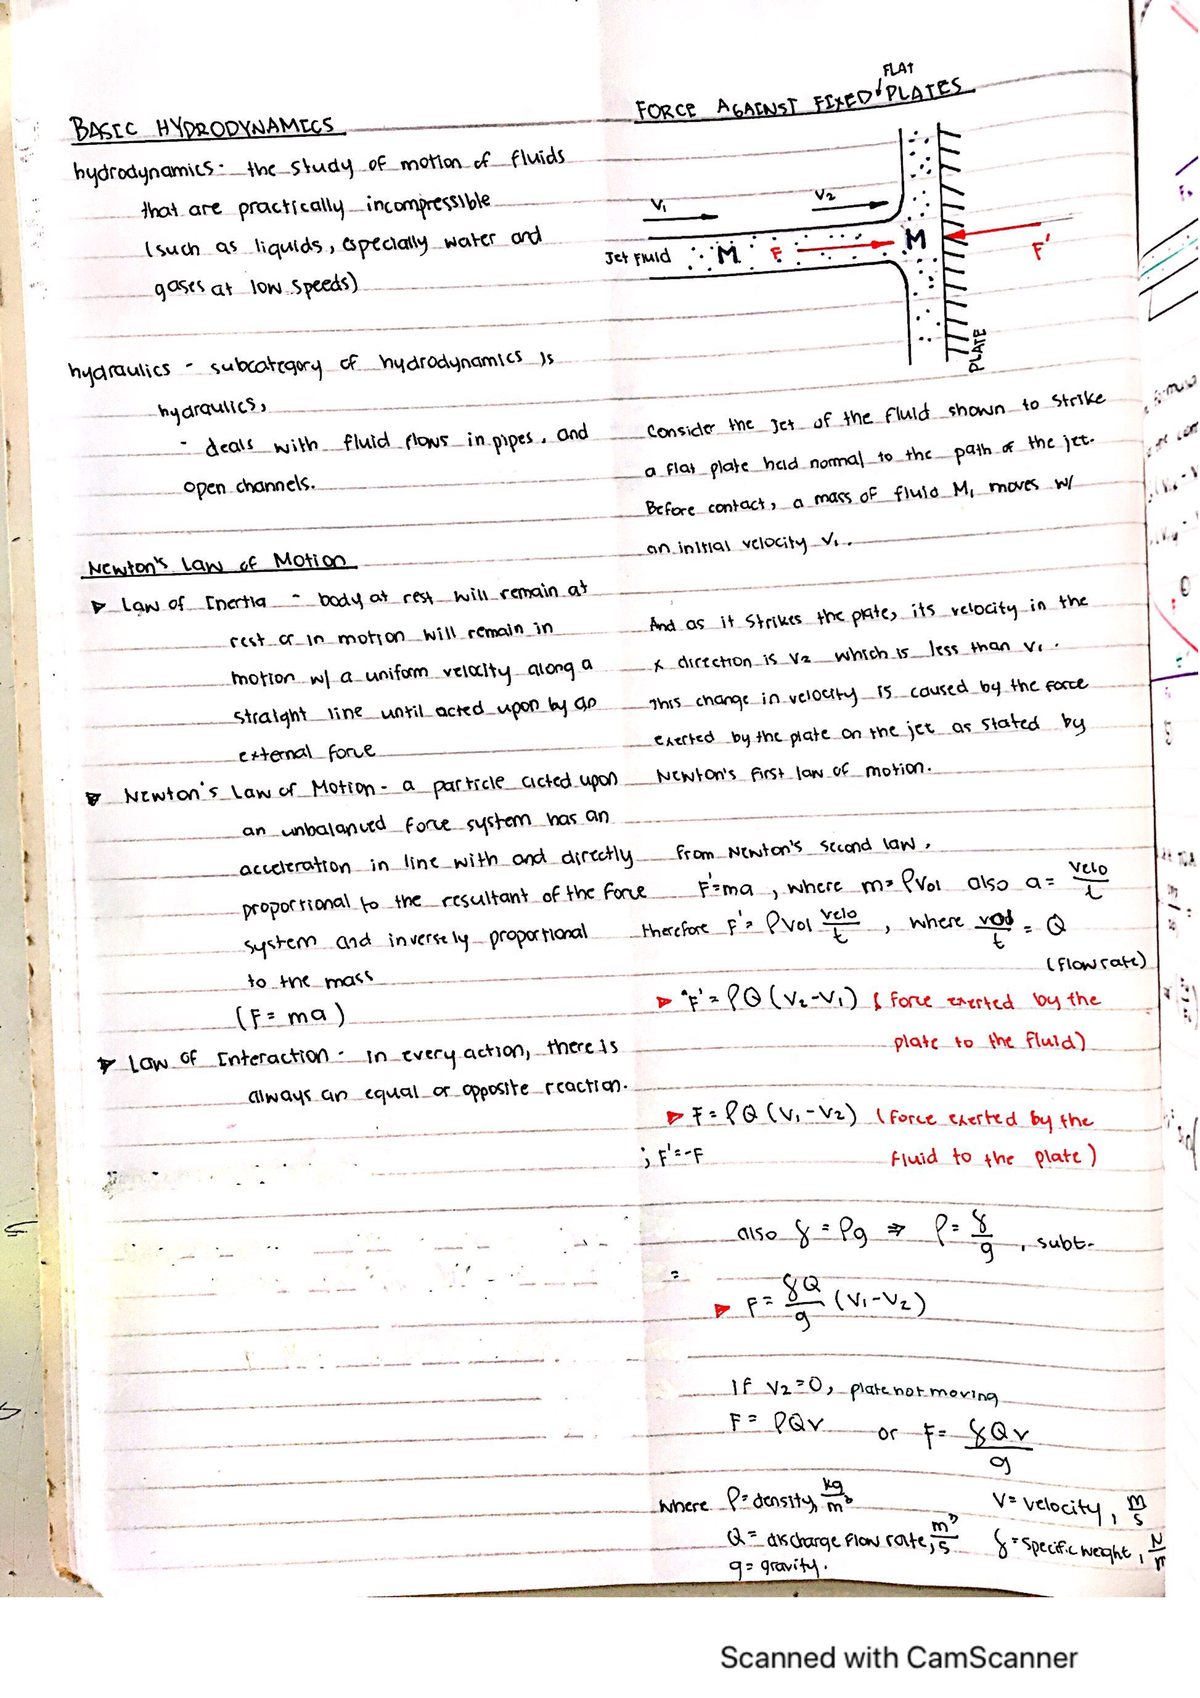 BASIC HYDRODYNAMICS
hydrodynamics - the study of motion of fluids
that are practically incompressible
(such as liquids, especially water and
gases at low speeds)
hydraulics - subcategory of hydrodynamics is
hydraulics,
- deals with fluid flows in pipes, and
open channels.
Newton's Law of Motion
▷ Law of Inertia - body at rest will remain at
rest or in motion will remain in
motion w/ a uniform velocity along a
straight line until acted upon by an
external force
▷ Newton's Law of Motion - a particle acted upon
an unbalanced force system has an
acceleration in line with and directly
proportional to the resultant of the force
system and inversely proportional
to the mass
(F = ma)
▷ Law of Interaction - in every action, there is
always an equal or opposite reaction.
FLAT
FORCE AGAINST FIXED PLATES
V₁
V₂
Jet Fluid
M
F
M
F'
PLATE
Consider the jet of the fluid shown to strike
a flat plate held normal to the path of the jet.
Before contact, a mass of fluid M, moves w/
an initial velocity V₁.
And as it strikes the plate, its velocity in the
x direction is V₂ which is less than V₁.
This change in velocity is caused by the force
exerted by the plate on the jet as stated by
Newton's first law of motion.
From Newton's second law,
F'=ma, where m=ρVol also a= velo/t
therefore F'= ρVol velo/t, where vol/t = Q
(flowrate)
▷ "F' = ρQ (V₂-V₁) (force exerted by the
plate to the fluid)
▷ F = ρQ (V₁-V₂) (force exerted by the
; F'=-F fluid to the plate)
also γ = ρg ⇒ ρ= γ/g, subt.
=
▷ F= γQ/g (V₁-V₂)
if V₂=0, plate not moving
F= ρQV or F= γQV/g
where ρ= density, kg/m³ V= velocity, m/s
Q= discharge flow rate, m³/s γ= specific weight, N
g= gravity.
Scanned with CamScanner